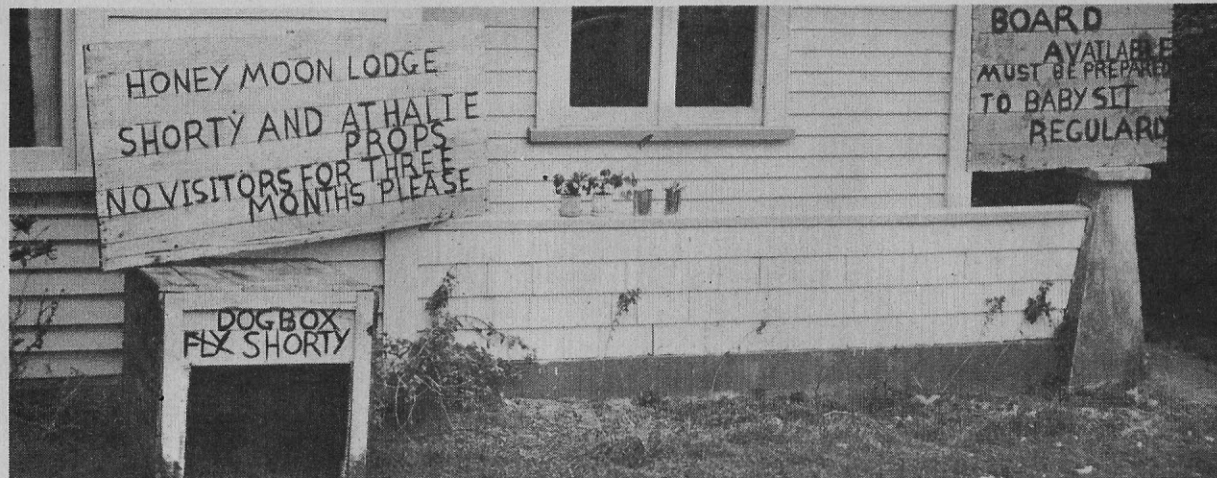 HONEY MOON LODGE
SHORTY AND ATHALIE
PROPS
NO VISITORS FOR THREE
MONTHS PLEASE
DOGBOX
FLX SHORTY
BOARD
AVAILABLE
MUST BE PREPARED
TO BABY SIT
REGULARLY